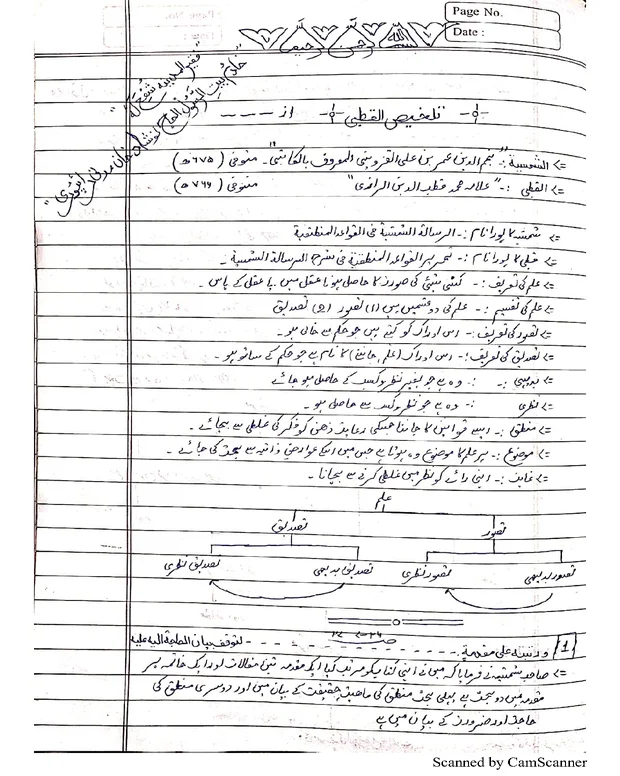 Page No.
Date :
بسم اللہ الرحمن الرحیم
تلخیص القطبی از ----
=> الشمسیۃ :- نجم الدین عمر بن علی القزوینی المعروف بالکاتبی۔ متوفی (675ھ)
=> القطبی :- "علامہ محمد قطب الدین الرازی" متوفی (766ھ)
=> شمسیہ کا پورا نام :- الرسالۃ الشمسیۃ فی القواعد المنطقیۃ
=> قطبی کا پورا نام :- تحریر القواعد المنطقیۃ فی شرح الرسالۃ الشمسیۃ ۔
=> علم کی تعریف :- کسی شئی کی صورت کا حاصل ہونا عقل میں یا عقل کے پاس ۔
=> علم کی تقسیم :- علم کی دو قسمیں ہیں (1) تصور (2) تصدیق
=> تصور کی تعریف :- اس ادراک کو کہتے ہیں جو حکم سے خالی ہو ۔
=> تصدیق کی تعریف :- اس ادراک (علم، جاننے) کا نام ہے جو حکم کے ساتھ ہو ۔
=> بدیہی :- وہ ہے جو بغیر نظر و کسب کے حاصل ہو جائے
=> نظری :- وہ ہے جو نظر و کسب سے حاصل ہو ۔
=> منطق :- ایسے قوانین کا جاننا جسکی رعایت ذہن کو فکر کی غلطی سے بچائے ۔
=> موضوع :- ہر علم کا موضوع وہ ہوتا ہے جس میں اسکے عوارض ذاتیہ سے بحث کی جائے ۔
=> غایت :- اپنی رائے کو نظر میں غلطی کرنے سے بچانا ۔
علم
تصور تصدیق
تصور بدیہی تصور نظری تصدیق بدیہی تصدیق نظری
[1] ورتبتہ علی مقدمۃ ------ لتوقف بیان الحاجۃ الیہ علیہ
=> صاحب شمسیہ نے فرمایا کہ میں نے اپنی کتاب کو مرتب کیا ایک مقدمہ تین مقالات اور ایک خاتمہ پر
مقدمہ میں دو بحث ہے پہلی بحث منطق کی ماہیت حقیقت کے بیان میں اور دوسری منطق کی
حاجت اور ضرورت کے بیان میں ہے
Scanned by CamScanner